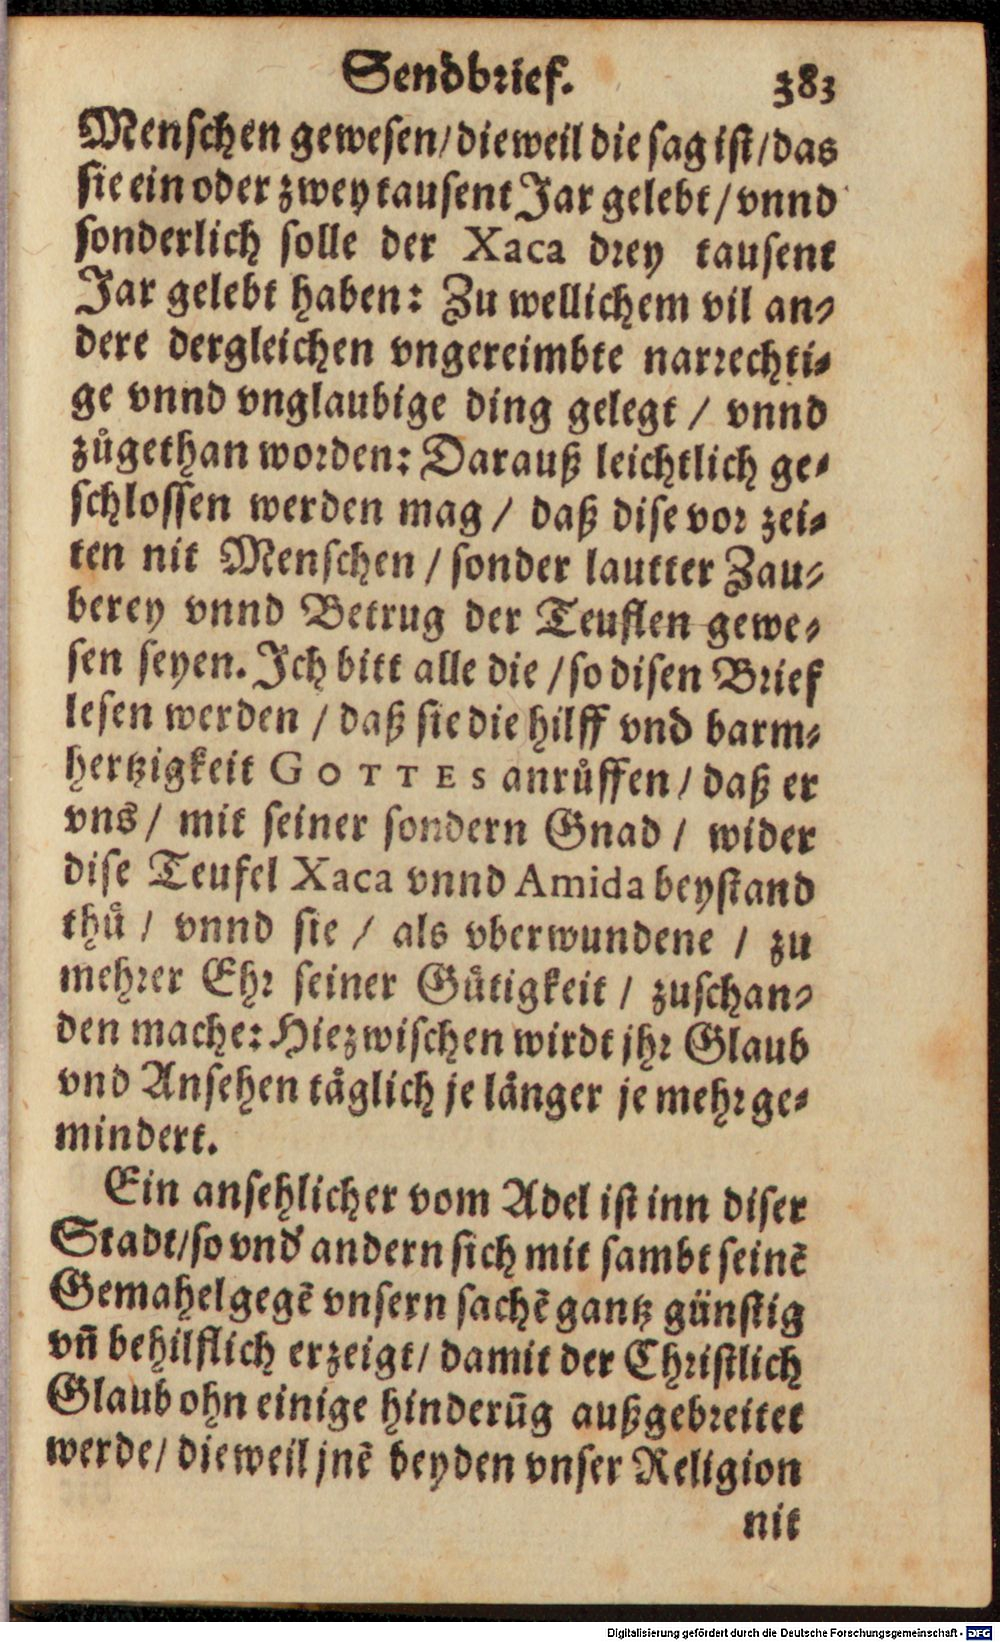 Sendbrief. 383
Menschen gewesen/ dieweil die sag ist/ das
sie ein oder zwey tausent Jar gelebt / vnnd
sonderlich solle der Xaca drey tausent
Jar gelebt haben: Zu wellichem vil an-
dere dergleichen vngereimbte narrechti-
ge vnnd vnglaubige ding gelegt / vnnd
zůgethan worden: Darauß leichtlich ge-
schlossen werden mag / daß dise vor zei-
ten nit Menschen / sonder lautter Zau-
berey vnnd Betrug der Teuflen gewe-
sen seyen. Ich bitt alle die / so disen Brief
lesen werden / daß sie die hilff vnd barm-
hertzigkeit GOTTES anrůffen / daß er
vns / mit seiner sondern Gnad / wider
dise Teufel Xaca vnnd Amida beystand
thů / vnnd sie / als vberwundene / zu
mehrer Ehr seiner Gůtigkeit / zuschan-
den mache: Hiezwischen wirdt jhr Glaub
vnd Ansehen täglich je länger je mehr ge-
mindert.
Ein ansehlicher vom Adel ist inn diser
Stadt/ so vnd' andern sich mit sambt seinē
Gemahel gegē vnsern sachē gantz günstig
vn̄ behilflich erzeigt/ damit der Christlich
Glaub ohn einige hinderūg außgebreitet
werde/ dieweil jnē beyden vnser Religion
nit
Digitalisierung gefördert durch die Deutsche Forschungsgemeinschaft - DFG